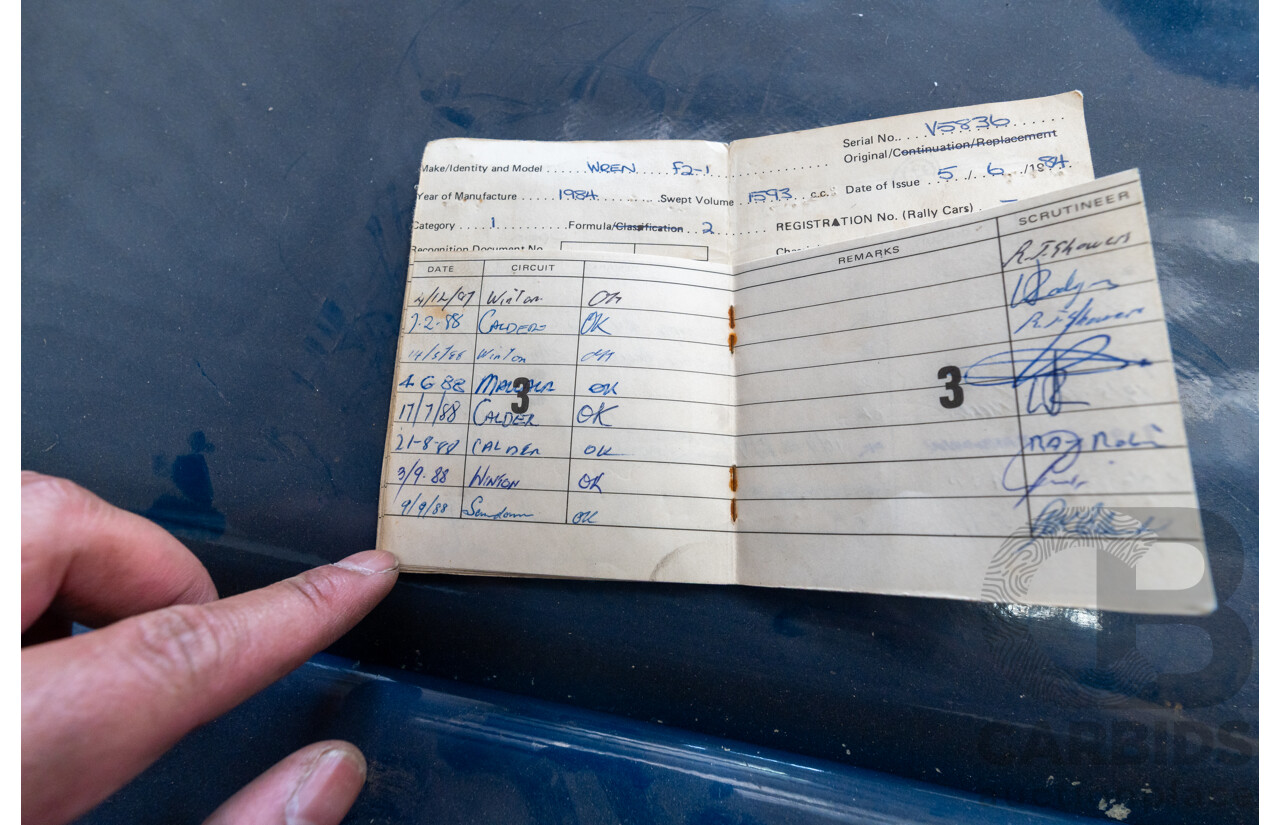 Serial No. . V5836 . . . . . .
Original/Continuation/Replacement
Make/Identity and Model . . . . WREN . . . . F2-1 . . . . . . . . . .
Date of Issue . . 5 . / . . 6 . . /19 84 .
Year of Manufacture . . . . . 1984 . . . . . . . Swept Volume . 1593 . . c.c.
REGISTRATION No. (Rally Cars) .
Category . . . 1 . . . . . . . . . . . . Formula/Classification . . 2 . . . . .
Recognition Document No.
DATE CIRCUIT REMARKS SCRUTINEER
4/12/87 Winton OK R.J. Showers
7-2-88 CALDER OK
14/5/88 Winton OK R.J. Showers
4 6 88 OK
3 3
17/7/88 CALDER OK
21-8-88 CALDER OK
3/9-88 WINTON OK
9/9/88 Sandown OK
CARBIDS